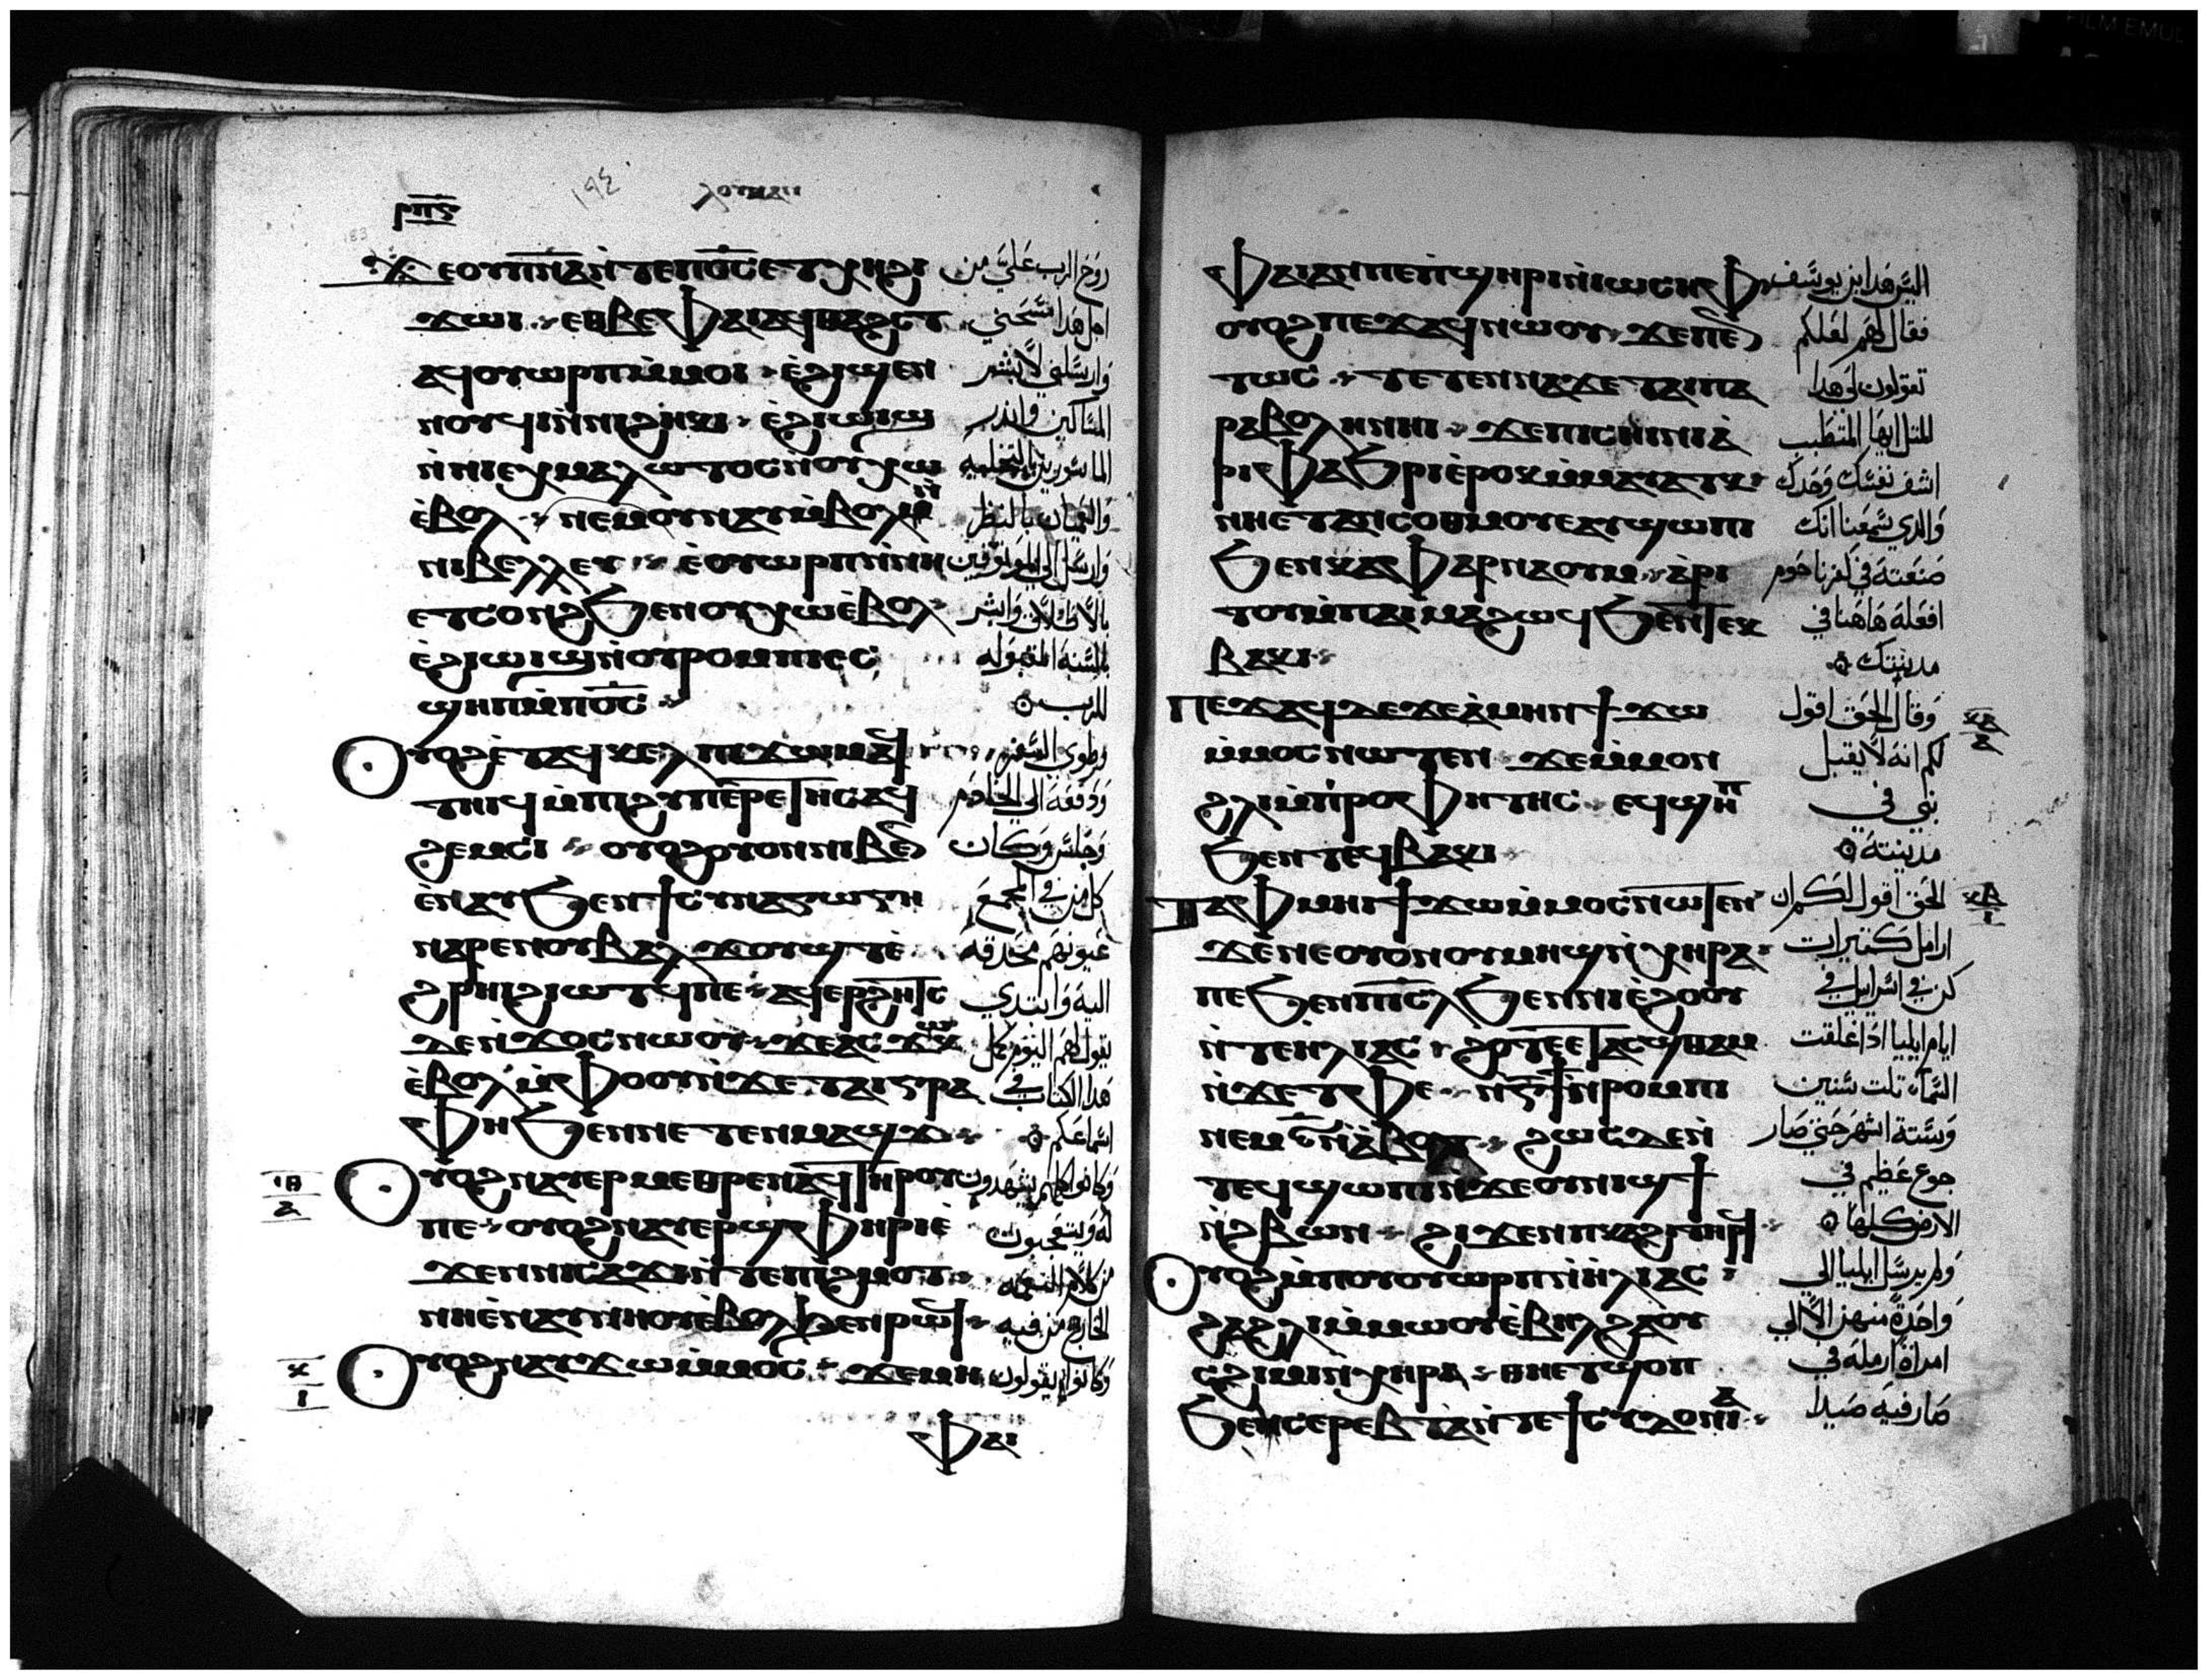 ⲣⲡⲋ ⲗⲟⲩⲕⲁⲛ
ϫⲉⲟⲩⲡ̅ⲛ̅ⲁ̅ⲛ̀ⲧⲉⲡⲟ̅ⲥ̅ⲉⲧⲭⲏϩⲓ روح الرب علي من
ϫⲱⲓ ⲉⲑⲃⲉⲫⲁⲓⲁϥⲑⲁϩⲥⲧ اجل هدا مسحني
ⲁϥⲟⲩⲱⲣⲡⲙ̀ⲙⲟⲓ ⲉ̀ϩⲓϣⲉⲛ وارسلني لابشر
ⲛⲟⲩϥⲓⲛ̀ⲛⲓϩⲏⲕⲓ ⲉ̀ϩⲓⲱⲓϣ المساكين وانذر
ⲛ̀ⲛⲓⲉⲭⲙⲁⲗⲱⲧⲟⲥⲛ̀ⲟⲩⲭⲱ الماسورين بالتخليه
ⲉ̀ⲃⲟⲗ ⲛⲉⲙⲟⲩⲛⲁⲩⲙ̀ⲃⲟⲗⲛ̀ والعميان بالنظر
ⲛⲓⲃⲉⲗⲗⲉⲩ ⲉ̀ⲟⲩⲱⲣⲡⲛ̀ⲛⲏ وارسل الي الموتوقين
ⲉⲧⲥⲟⲛϩϧⲉⲛⲟⲩⲭⲱⲉ̀ⲃⲟⲗ بالاطلاق وابشر
ⲉ̀ϩⲓⲱⲓϣⲛ̀ⲟⲩⲣⲟⲙⲡⲓⲉⲥ بالسنة المقبوله
ϣⲏⲡⲙ̀ⲡⲟ̅ⲥ̅ للرب
ⲟⲩⲟϩⲉ̀ⲧⲁϥⲕⲉⲗⲡⲓϫⲱⲙⲁϥ وطوي السفر
ⲧⲏⲓϥⲙ̀ⲡⲓϩⲩⲡⲉⲣⲉⲧⲏⲥⲁϥ ودفعه الي الخادم
ϩⲉⲙⲥⲓ ⲟⲩⲟϩⲟⲩⲟⲛⲛⲓⲃⲉⲛ وجلس وكان
ⲉ̀ⲛⲁⲩϧⲉⲛϯⲥⲩⲛⲁⲅⲱⲅⲏ كل من في المجمع
ⲛⲁⲣⲉⲛⲟⲩⲃⲁⲗϫⲟⲩϣⲧⲉ̀ عيونهم محدقه
ϩⲣⲏⲓϩⲓⲱⲧϥⲡⲉ ⲁϥⲉⲣϩⲏⲧⲥ اليه وابتدي
ⲇⲉⲛ̀ϫⲟⲥⲛⲱⲟⲩ ϫⲉⲁⲥϫⲱⲕ يقول لهم اليوم كمل
ⲉ̀ⲃⲟⲗⲙ̀ⲫⲟⲟⲩⲛ̀ϫⲉⲧⲁⲓⲅⲣⲁ هدا الكتاب في
ⲫⲏϧⲉⲛⲛⲉⲧⲉⲛⲙⲁϣϫ اسماعكم
ⲓⲑ ⲁ ⲟⲩⲟϩⲛⲁⲩⲉⲣⲙⲉⲑⲣⲉⲛⲁϥⲧⲏⲣⲟⲩ وكانوا كلهم يشهدون
ⲡⲉ ⲟⲩⲟϩⲛⲁⲩⲉⲣϣⲫⲏⲣⲓⲉ̀ له ويتعجبون
ϫⲉⲛⲛⲓⲥⲁϫⲓⲛ̀ⲧⲉⲡⲓϩⲙⲟⲧ من كلام النعمه
ⲛⲏⲉ̀ⲛⲁⲩⲛⲏⲟⲩⲉ̀ⲃⲟⲗϧⲉⲛⲣⲱϥ الخارج من فيه
ⲕ ⲓ ⲟⲩⲟϩⲛⲁⲩϫⲱⲙ̀ⲙⲟⲥ ϫⲉⲙⲏ وكانوا يقولون
ⲫⲁⲓ
ⲫⲁⲓⲁⲛⲡⲉⲡ̀ϣⲏⲣⲓⲛ̀ⲓⲱⲥⲏⲫ اليس هدا ابن يوسف
ⲟⲩⲟϩⲡⲉϫⲁϥⲛⲱⲟⲩ ϫⲉⲡⲉⲛ فقال لهم لعلكم
ⲧⲱⲥ ⲧⲉⲧⲉⲛⲛⲁϫⲉⲧⲁⲓⲡⲁ تقولون لي هدا
ⲣⲁⲃⲟⲗⲏⲛⲏⲓ ϫⲉⲡⲓⲥⲏⲓⲛⲓⲁ̀ المتل ايها المتطبب
ⲣⲓⲫⲁϧⲣⲓⲉ̀ⲣⲟⲕⲙ̀ⲙⲁⲩⲁⲧⲕ اشف نفسك وحدك
ⲛⲏⲉⲧⲁⲛⲥⲟⲑⲙⲟⲩⲉⲁⲩϣⲱⲡⲓ والدي سمعنا انك
ϧⲉⲛⲕⲁⲫⲁⲣⲛⲁⲟⲩⲙ ⲁ̀ⲣⲓ صنعته في كفرناحوم
ⲧⲟⲩⲙ̀ⲡⲁⲓⲙⲁϩⲱϥϧⲉⲛⲧⲉⲕ افعله هاهنا في
ⲃⲁⲕⲓ مدينتك
ⲡⲉϫⲁϥⲇⲉϫⲉⲁ̀ⲙⲏⲛϯϫⲱ وقال الحق اقول ⲕⲁ ⲁ
ⲙ̀ⲙⲟⲥⲛⲱⲧⲉⲛ ϫⲉⲙ̀ⲙⲟⲛ لكم انه لا يقبل
ϩⲗⲓⲙ̀ⲡⲣⲟⲫⲏⲧⲏⲥ ⲉϥϣⲏⲡ نبي في
ϧⲉⲛⲧⲉϥⲃⲁⲕⲓ مدينته
ⲧⲁⲫⲙⲏⲓϯϫⲱⲙ̀ⲙⲟⲥⲛⲱⲧⲉⲛ الحق اقول لكم ان ⲕⲃ ⲓ
ϫⲉⲛⲉⲟⲩⲟⲛⲟⲩⲙⲏϣⲛ̀ⲭⲏⲣⲁ ارامل كتيرات
ⲡⲉϧⲉⲛⲡⲓ̅ⲥ̅ⲗϧⲉⲛⲛⲓⲉ̀ϩⲟⲟⲩ كن في اسرايل في
ⲛ̀ⲧⲉⲏⲗⲓⲁⲥ ϩⲟⲧⲉⲉⲧⲁⲥϣⲑⲁⲙ ايام ايليا اذ اغلقت
ⲛ̀ϫⲉⲧⲫⲉ ⲛ̀ⲅ̅ϯⲛ̀ⲣⲟⲙⲡⲓ السما تلت سنين
ⲛⲉⲙⲋ̅ⲛ̀ⲁ̀ⲃⲟⲧ ϩⲱⲥⲇⲉⲛ̀ وستة اشهر حتي صار
ⲧⲉϥϣⲱⲡⲓⲛ̀ϫⲉⲟⲩⲛⲓϣϯ جوع عظيم في
ⲛ̀ϩⲃⲱⲛ ϩⲓϫⲉⲛⲡⲕⲁϩⲓⲧⲏⲣϥ الارض كلها
ⲟⲩⲟϩⲙ̀ⲡⲟⲩⲟⲩⲱⲣⲡⲛ̀ⲏⲗⲓⲁⲥ ولم يرسل ايليا الي
ϩⲁϩⲗⲓⲙ̀ⲙⲱⲟⲩⲉ̀ⲃⲏⲗϩⲁⲟⲩ واحدة منهن الا الي
ⲥϩⲓⲙⲓⲛ̀ⲭⲏⲣⲁ ⲑⲏⲉⲧϣⲟⲡ امراة ارمله في
ϧⲉⲛⲥⲉⲣⲉⲃⲧⲁⲛ̀ⲧⲉϯⲥⲩⲇⲟⲛⲓⲁ̀ صارفيه صيدا